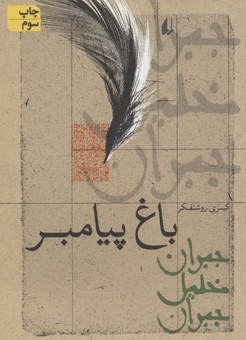 چاپ
سوم
جبران
خلیل
جبران
کبری روشنفکر
باغ پیامبر
جبران
خلیل
جبران